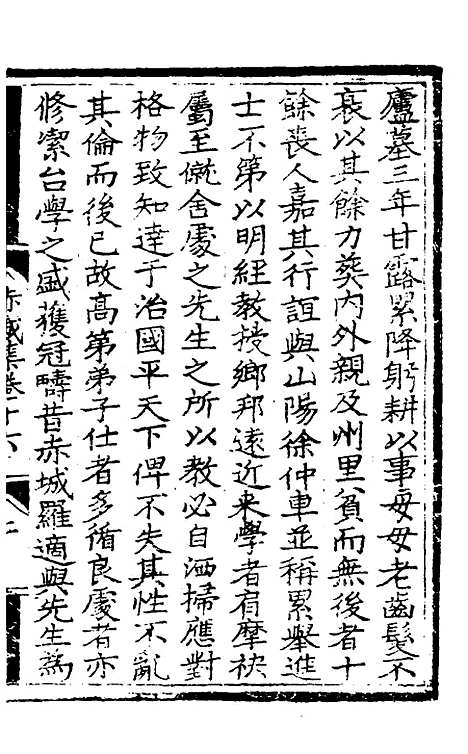 廬墓三年甘露累降躬耕以事母母老齒髮不
衰以其餘力葬内外親及州里貧而無後者十
餘喪人嘉其行誼與山陽徐仲車並稱累舉進
士不第以明經教授鄉邦遠近来學者肩摩袂
屬至僦舍處之先生之所以教必自洒掃應對
格物致知達于治國平天下俾不失其性不亂
其倫而後已故髙第弟子仕者多循良處者亦
修潔台學之盛獲冠疇昔赤城羅適與先生為
赤城集卷十六